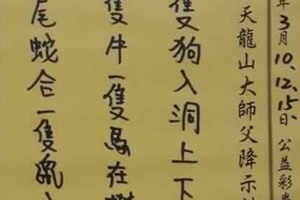 年3月10.12.15日 公益彩
天龍山大師父降示
隻狗入洞上下
隻牛一隻馬在
尾蛇合一隻